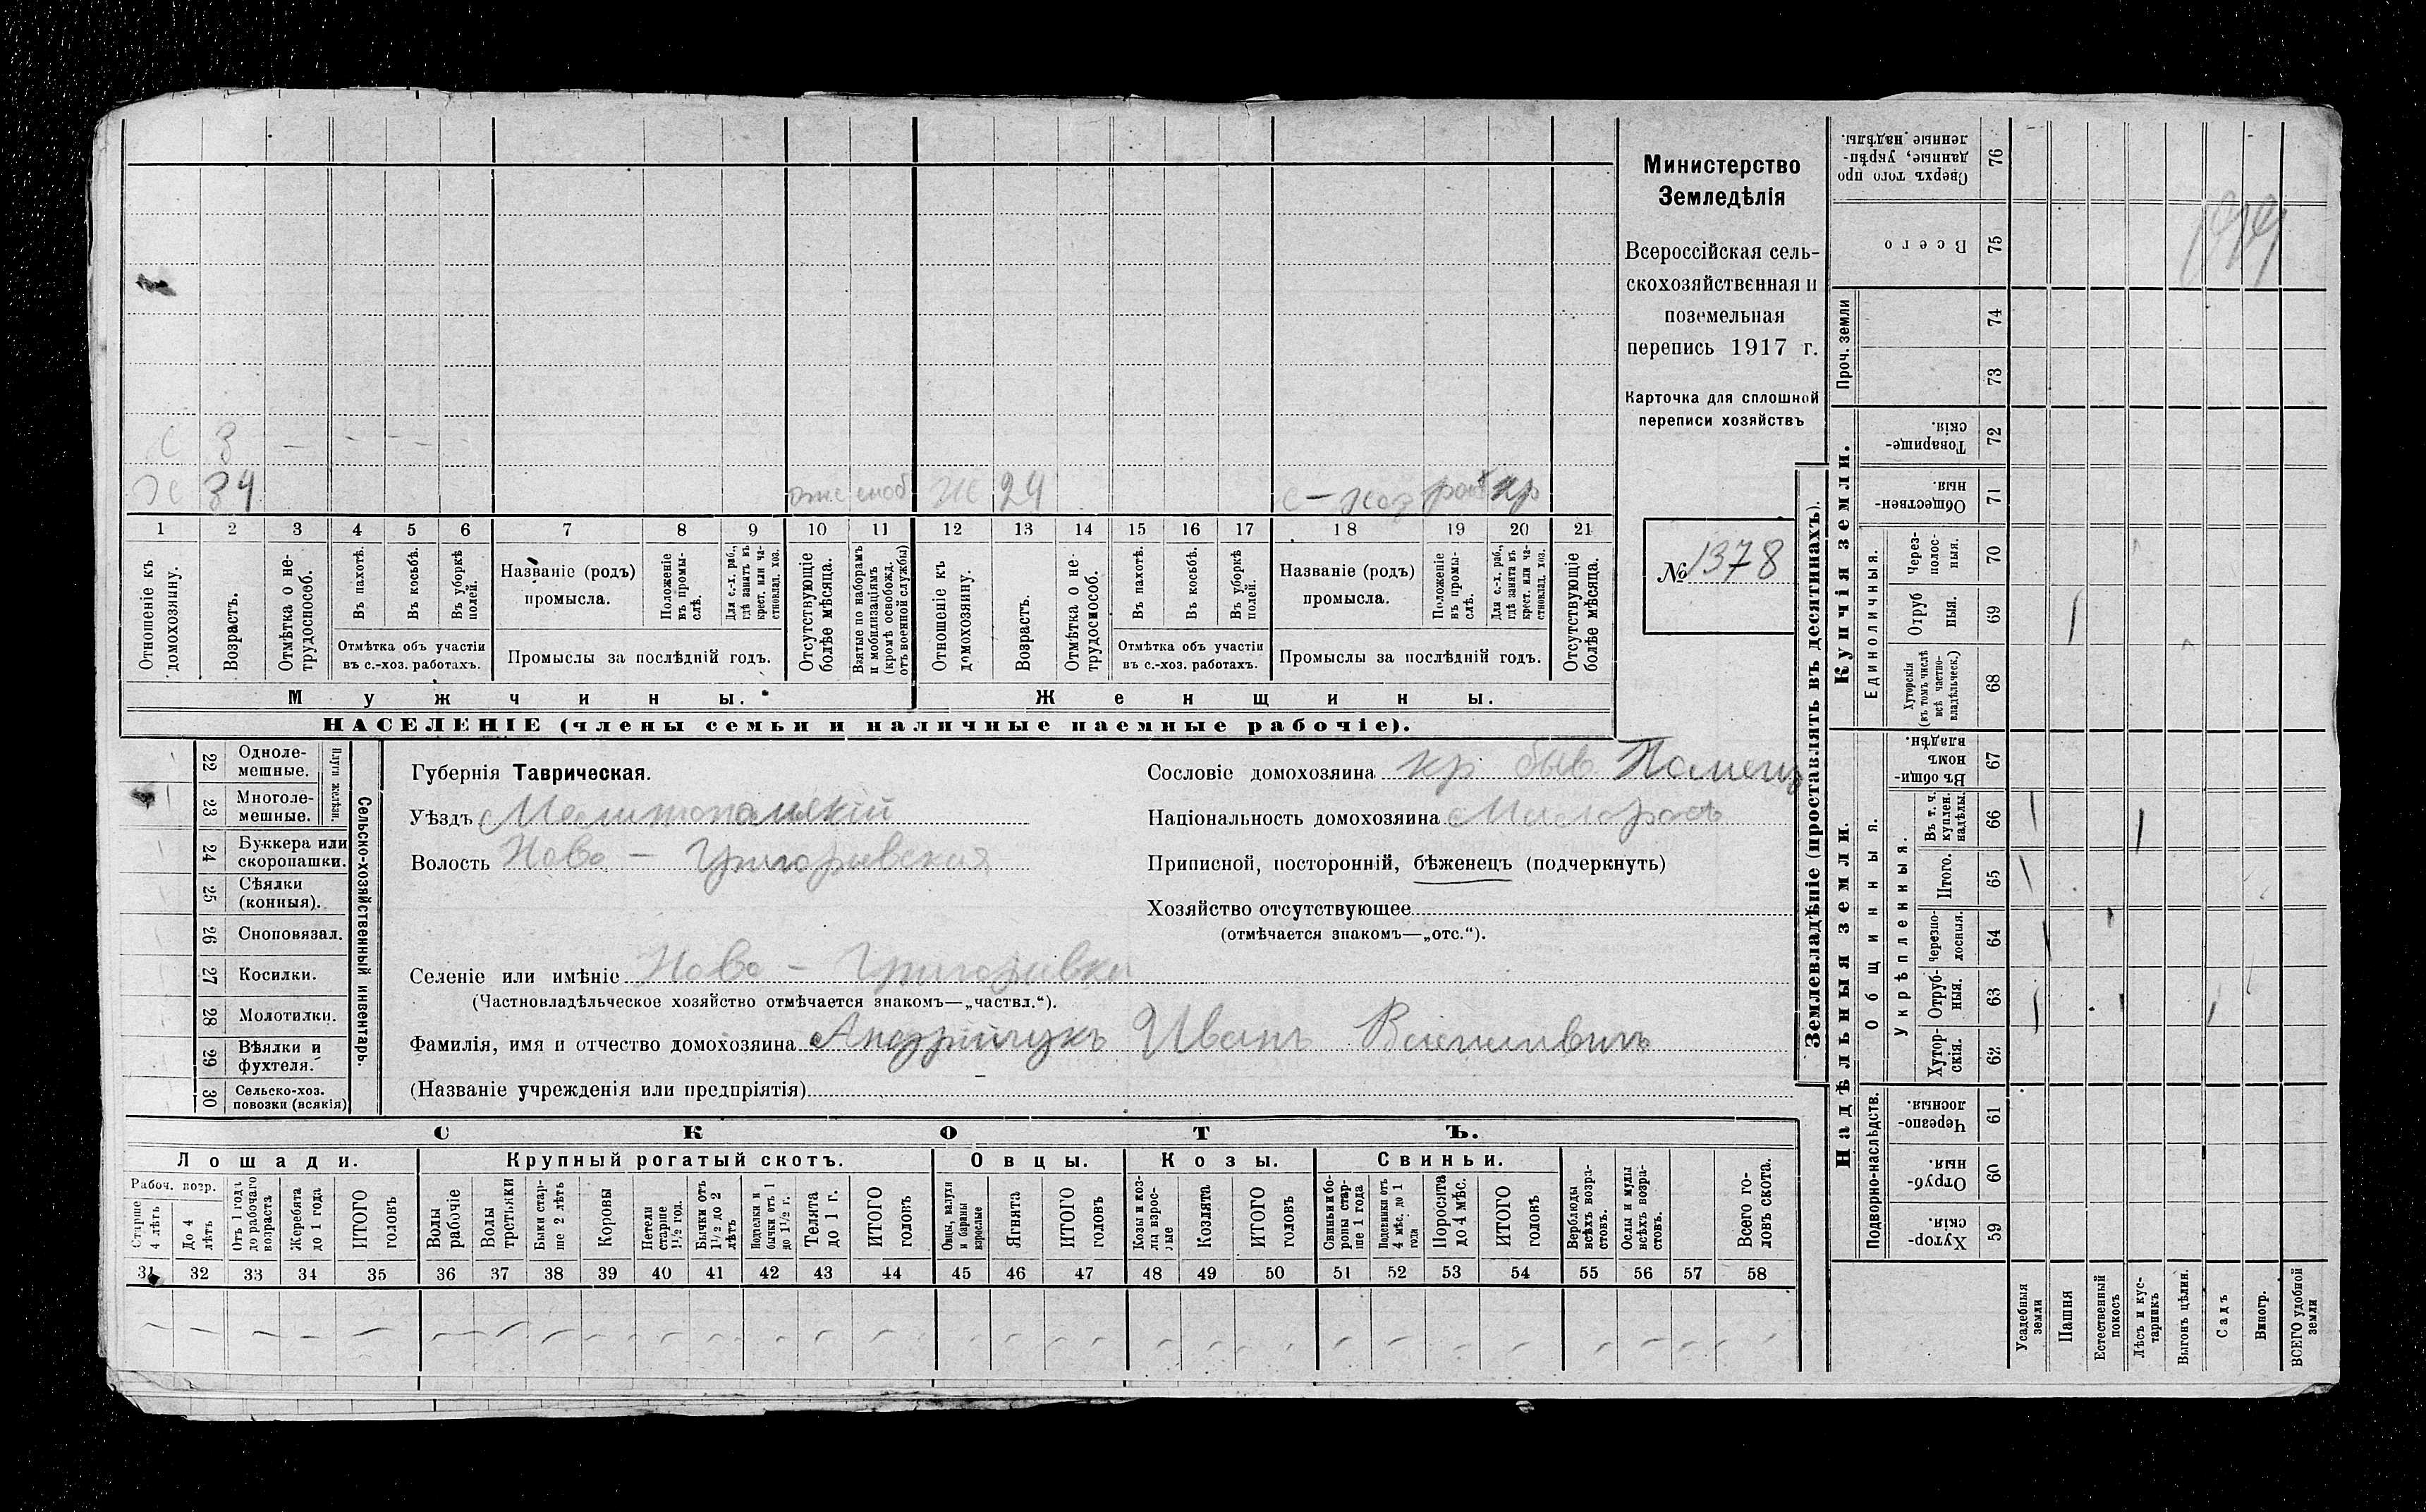 с 3 — - - - -
Х 34
Ж 24 с-хоз раб кр
1 2 3 4 5 6 7 8 9 10 11 12 13 14 15 16 17 18 19 20 21
Отношеніе къ домохозяину.
Возрастъ.
Отмѣтка о нетрудоспособ.
Въ пахотѣ.
Въ косьбѣ.
Въ уборкѣ полей.
Отмѣтка объ участіи
въ с.-хоз. работахъ.
Названіе (родъ)
промысла.
Положеніе въ промыслѣ.
Для с.-х. раб., гдѣ занятъ въ крест. или частновлад. хоз.
Промыслы за послѣдній годъ.
Отсутствующіе болѣе мѣсяца.
Взятые по наборамъ и мобилизаціямъ (кромѣ освобожд. отъ военной службы)
Отношеніе къ домохозяину.
Возрастъ.
Отмѣтка о нетрудоспособ.
Въ пахотѣ.
Въ косьбѣ.
Въ уборкѣ полей.
Отмѣтка объ участіи
въ с.-хоз. работахъ.
Названіе (родъ)
промысла.
Положеніе въ промыслѣ.
Для с.-х. раб., гдѣ занята въ крест. или частновлад. хоз.
Промыслы за послѣдній годъ.
Отсутствующіе болѣе мѣсяца.
Мужчины. Женщины.
НАСЕЛЕНІЕ (члены семьи и наличные наемные рабочіе).
Министерство
Земледѣлія
Всероссійская сель-
скохозяйственная и
поземельная
перепись 1917 г.
Карточка для сплошной
переписи хозяйствъ
№ 1378
22 Одноле-
мешные.
23 Многоле-
мешные.
Плуги желѣзн.
24 Буккера или
скоропашки.
25 Сѣялки
(конныя).
26 Сноповязал.
27 Косилки.
28 Молотилки.
29 Вѣялки и
фухтеля.
30 Сельско-хоз.
повозки (всякія)
Сельско-хозяйственный инвентарь.
Губернія Таврическая.
Уѣздъ Мелитопольскій
Волость Ново - Григорьевская
Сословіе домохозяина кр быв Помещ
Національность домохозяина Малоросъ
Приписной, посторонній, бѣженецъ (подчеркнуть)
Хозяйство отсутствующее
(отмѣчается знакомъ—„отс.“).
Селеніе или имѣніе Ново - Григорьевка
(Частновладѣльческое хозяйство отмѣчается знакомъ—„частвл.“).
Фамилія, имя и отчество домохозяина Андрійчукъ Иванъ Васильевичъ
(Названіе учрежденія или предпріятія)
СКОТЪ.
Лошади. Крупный рогатый скотъ. Овцы. Козы. Свиньи.
Рабоч. возр.
Старше 4 лѣтъ
До 4 лѣтъ
Отъ 1 года до рабочаго возраста
Жеребята до 1 года
ИТОГО головъ
Волы рабочіе
Волы третьяки
Быки старше 2 лѣтъ
Коровы
Нетели старше 1½ год.
Бычки отъ 1½ до 2 лѣтъ
Подтелки и бычки отъ 1 до 1½ г.
Телята до 1 г.
ИТОГО головъ
Овцы, валухи и бараны взрослые
Ягнята
ИТОГО головъ
Козы и козлы взрослые
Козлята
ИТОГО головъ
Свиньи и боровы старше 1 года
Подсвинки отъ 4 мѣс. до 1 года
Поросята до 4 мѣс.
ИТОГО головъ
Верблюды всѣхъ возрастовъ.
Ослы и мулы всѣхъ возрастовъ.
Всего головъ скота.
31 32 33 34 35 36 37 38 39 40 41 42 43 44 45 46 47 48 49 50 51 52 53 54 55 56 57 58
Землевладѣніе (проставлять въ десятинахъ).
Купчія земли.
Сверхъ того проданные, укрѣпленные надѣлы. 76
Всего 75
Проч. земли 74
73
Товарищескія. 72
Общественныя. 71
Единоличныя.
Черезполосныя. 70
Отрубныя. 69
Хуторскія (въ томъ числѣ всѣ частновладѣльческ.) 68
Надѣльныя земли.
Общинныя.
Въ общинномъ владѣн. 67
Укрѣпленныя.
Въ т. ч. куплен. надѣлы. 66
Итого. 65
Черезполосныя. 64
Отрубныя. 63
Хуторскія. 62
Подворно-наслѣдств.
Черезполосныя. 61
Отрубныя. 60
Хуторскія. 59
Усадебныя земли
Пашня
Естественный покосъ
Лѣсъ и кустарникъ
Выгонъ цѣлин.
Садъ
Виногр.
ВСЕГО удобной земли